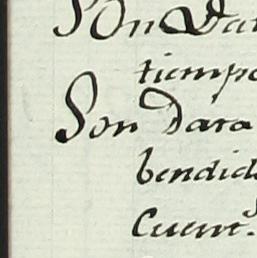 Son Da
tiempo
Son Data
bendid
Cuent.